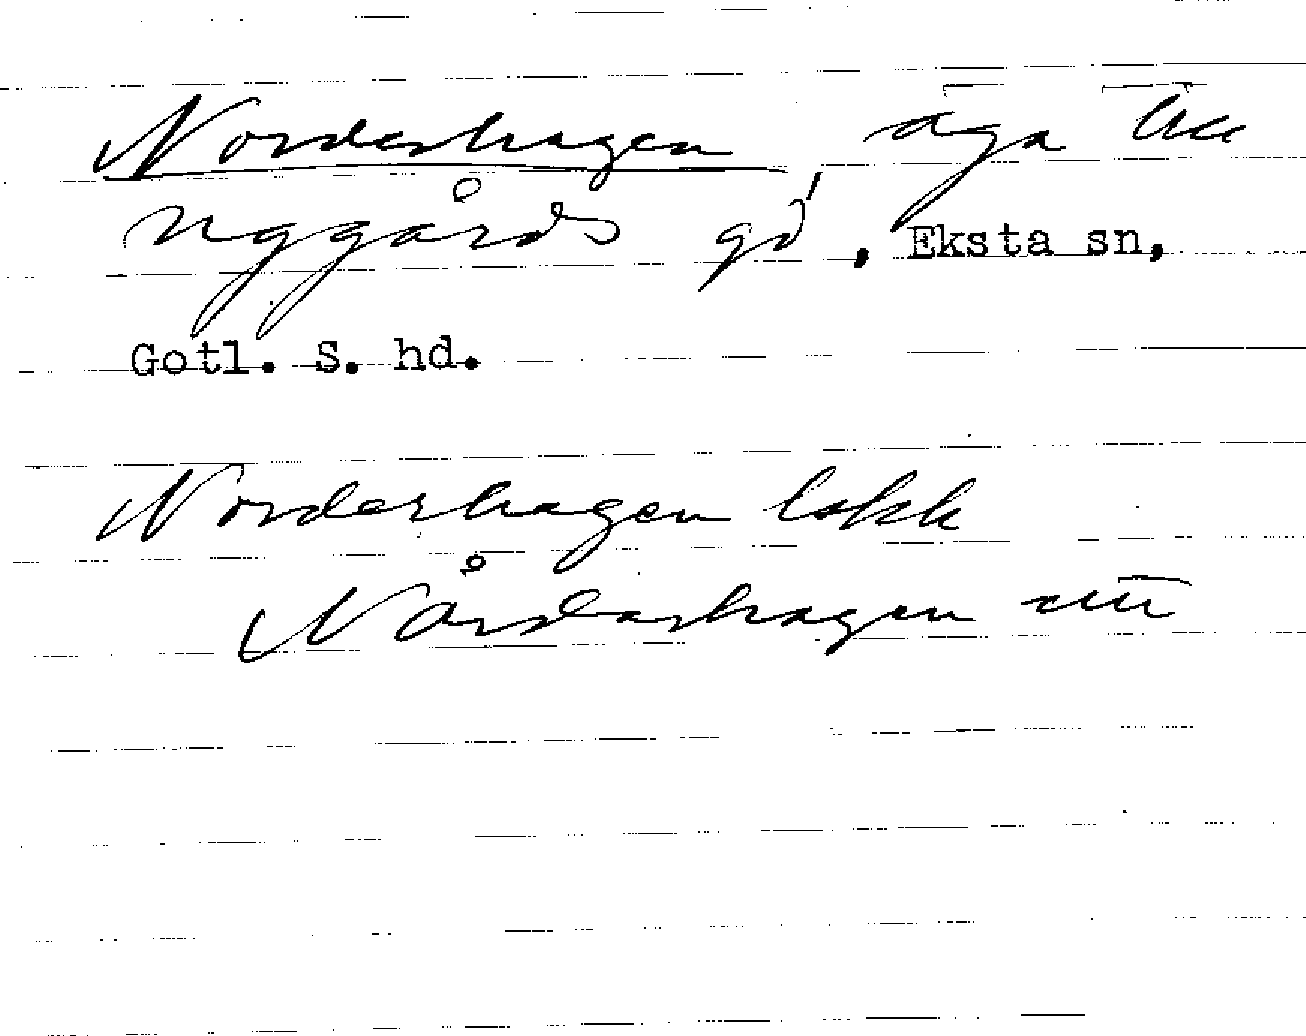 Norderhagen, äga till
Nygårds gd, Eksta sn,
Gotl. S. hd.
Norderhagen lokk
Nårdarhagen